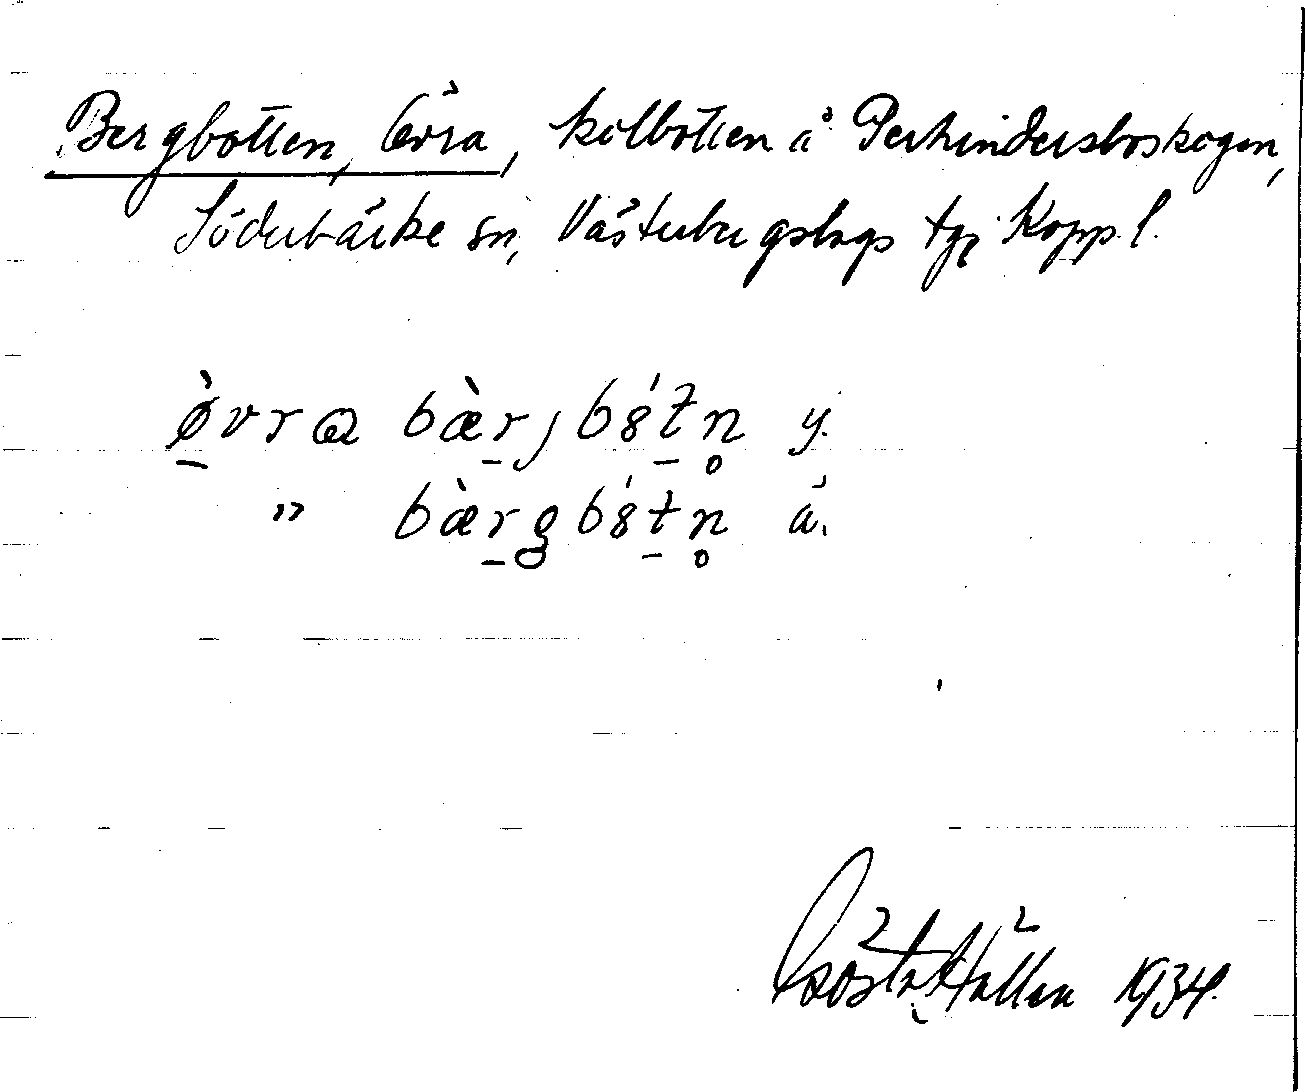 Bergbotten, Övra, kolbotten å Perhindersboskogen,
Söderbärke sn, Västerbergslags tgs Kopp. l.
ø̀vra bæ̀rjbȣ́tn̥ y.
" bæ̀rgbȣ́tn̥ ä.
Gösta Hallén 1934.